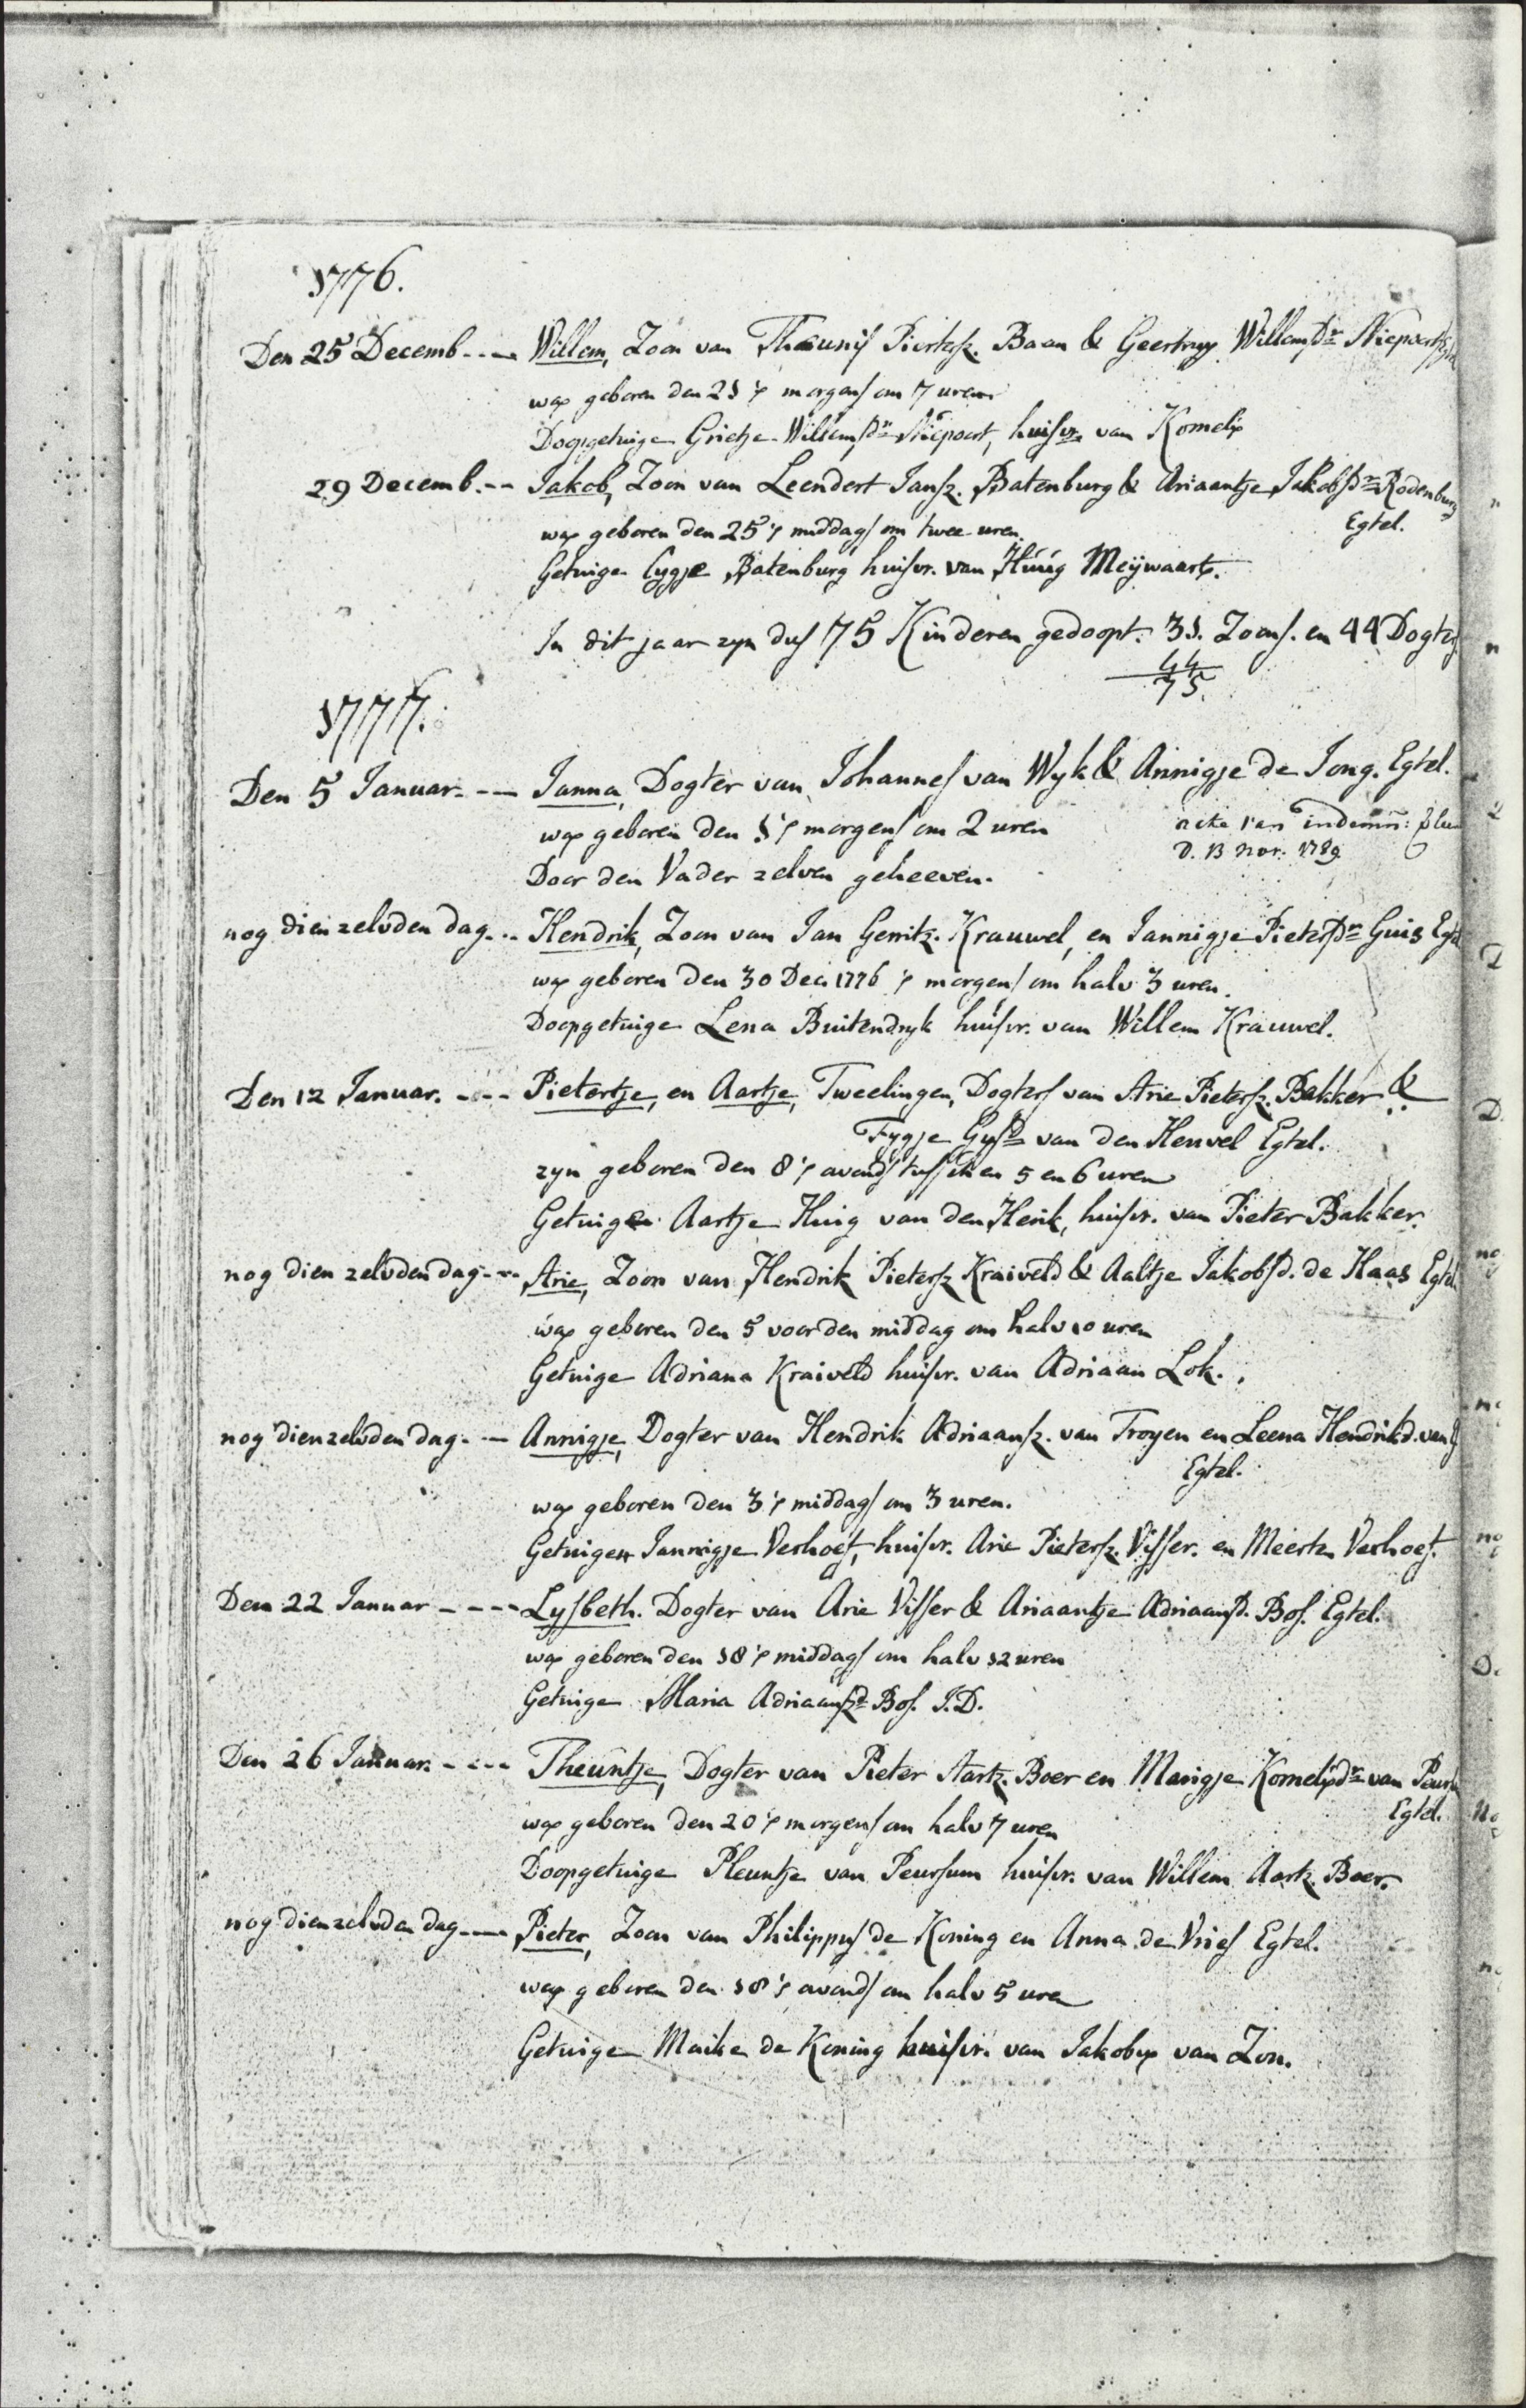 1776.
Den 25 Decemb. Willem, Zoon van Theunis Pietersz. Baan & Geertruy Willemsdr. Niepoort Egtel.
was geboren den 21 's morgens om 7 uren
Doopgetuige Grietje Willemsdr. Niepoort, huisvr. van Kornelis
29 Decemb. Jakob, Zoon van Leendert Jansz. Batenburg & Ariaantje Jakobsdr. Rodenburg
Egtel.
was geboren den 25 's middags om twee uren.
Getuige Eygje Batenburg huisvr. van Huig Meijwaart.
In dit jaar zyn dus 75 Kinderen gedoopt. 31. Zoons. en 44 Dogters
44
75.
1777.
Den 5 Januar. Janna, Dogter van Johannes van Wyk & Annigje de Jong. Egtel.
was geboren den 1 's morgens om 2 uren
acte van indemn:
d. 13 nov. 1789
Door den Vader zelven geheeven.
nog dien zelvden dag. Hendrik, Zoon van Jan Gerritz. Krauwel, en Jannigje Pietersdr. Guis Egtel
was geboren den 30 Dec. 1776 's morgens om halv 3 uren.
Doopgetuige Lena Buitendyk huisvr. van Willem Krauwel.
Den 12 Januar. Pietertje, en Aartje, Tweelingen, Dogters van Arie Pietersz. Bakker &
Fygje Gysdr. van den Heuvel Egtel.
zyn geboren den 8 's avonds tusschen 5 en 6 uren
Getuige Aartje Huig van den Herik, huisvr. van Pieter Bakker.
nog dien zelvden dag Arie, Zoon van Hendrik Pietersz Kraiveld & Aaltje Jakobsd. de Haas Egtel
was geboren den 5 voor den middag om halv 10 uren
Getuige Adriana Kraiveld huisvr. van Adriaan Lok.
nog dien zelvden dag. Annigje, Dogter van Hendrik Adriaansz. van Troyen en Leena Hendrikd. van
Egtel.
was geboren den 3 's middags om 3 uren.
Getuigen Jannigje Verhoef, huisvr. Arie Pietersz. Visser. en Meerten Verhoef.
Den 22 Januar Lysbeth. Dogter van Arie Visser & Ariaantje Adriaansd. Bos. Egtel.
was geboren den 18 's middags om halv 12 uren
Getuige Maria Adriaansdr. Bos. J.D.
Den 26 Januar. Theuntje, Dogter van Pieter Aartz. Boer en Marigje Kornelisdr. van Peursum
Egtel.
was geboren den 20 's morgens om halv 7 uren
Doopgetuige Pleuntje van Peursum huisvr. van Willem Aartz. Boer.
nog dien zelvden dag Pieter, Zoon van Philippus de Koning en Anna de Vries Egtel.
was geboren den 18 's avonds om halv 5 uren
Getuige Maike de Koning huisvr. van Jakobus van Zon.